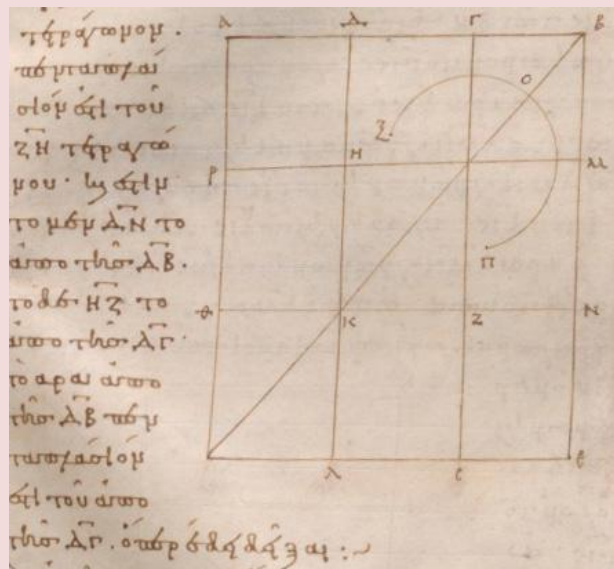 τετράγωνον.
πενταπλά
σιόν ἐστι τοῦ
ΖΗ τετραγώ
νου. καί ἐστιν
τὸ μὲν ΔΝ τὸ
ἀπὸ τῆς ΔΒ.
τὸ δὲ ΗΖ τὸ
ἀπὸ τῆς ΔΓ.
τὸ ἄρα ἀπὸ
τῆς ΔΒ πεν
ταπλάσιόν
ἐστι τοῦ ἀπὸ
τῆς ΔΓ. ὅπερ ἔδει δεῖξαι :~
Α Δ Γ Β
Ο
Ξ
Ρ Η Μ
Π
Θ Κ Ζ Ν
Λ Ε